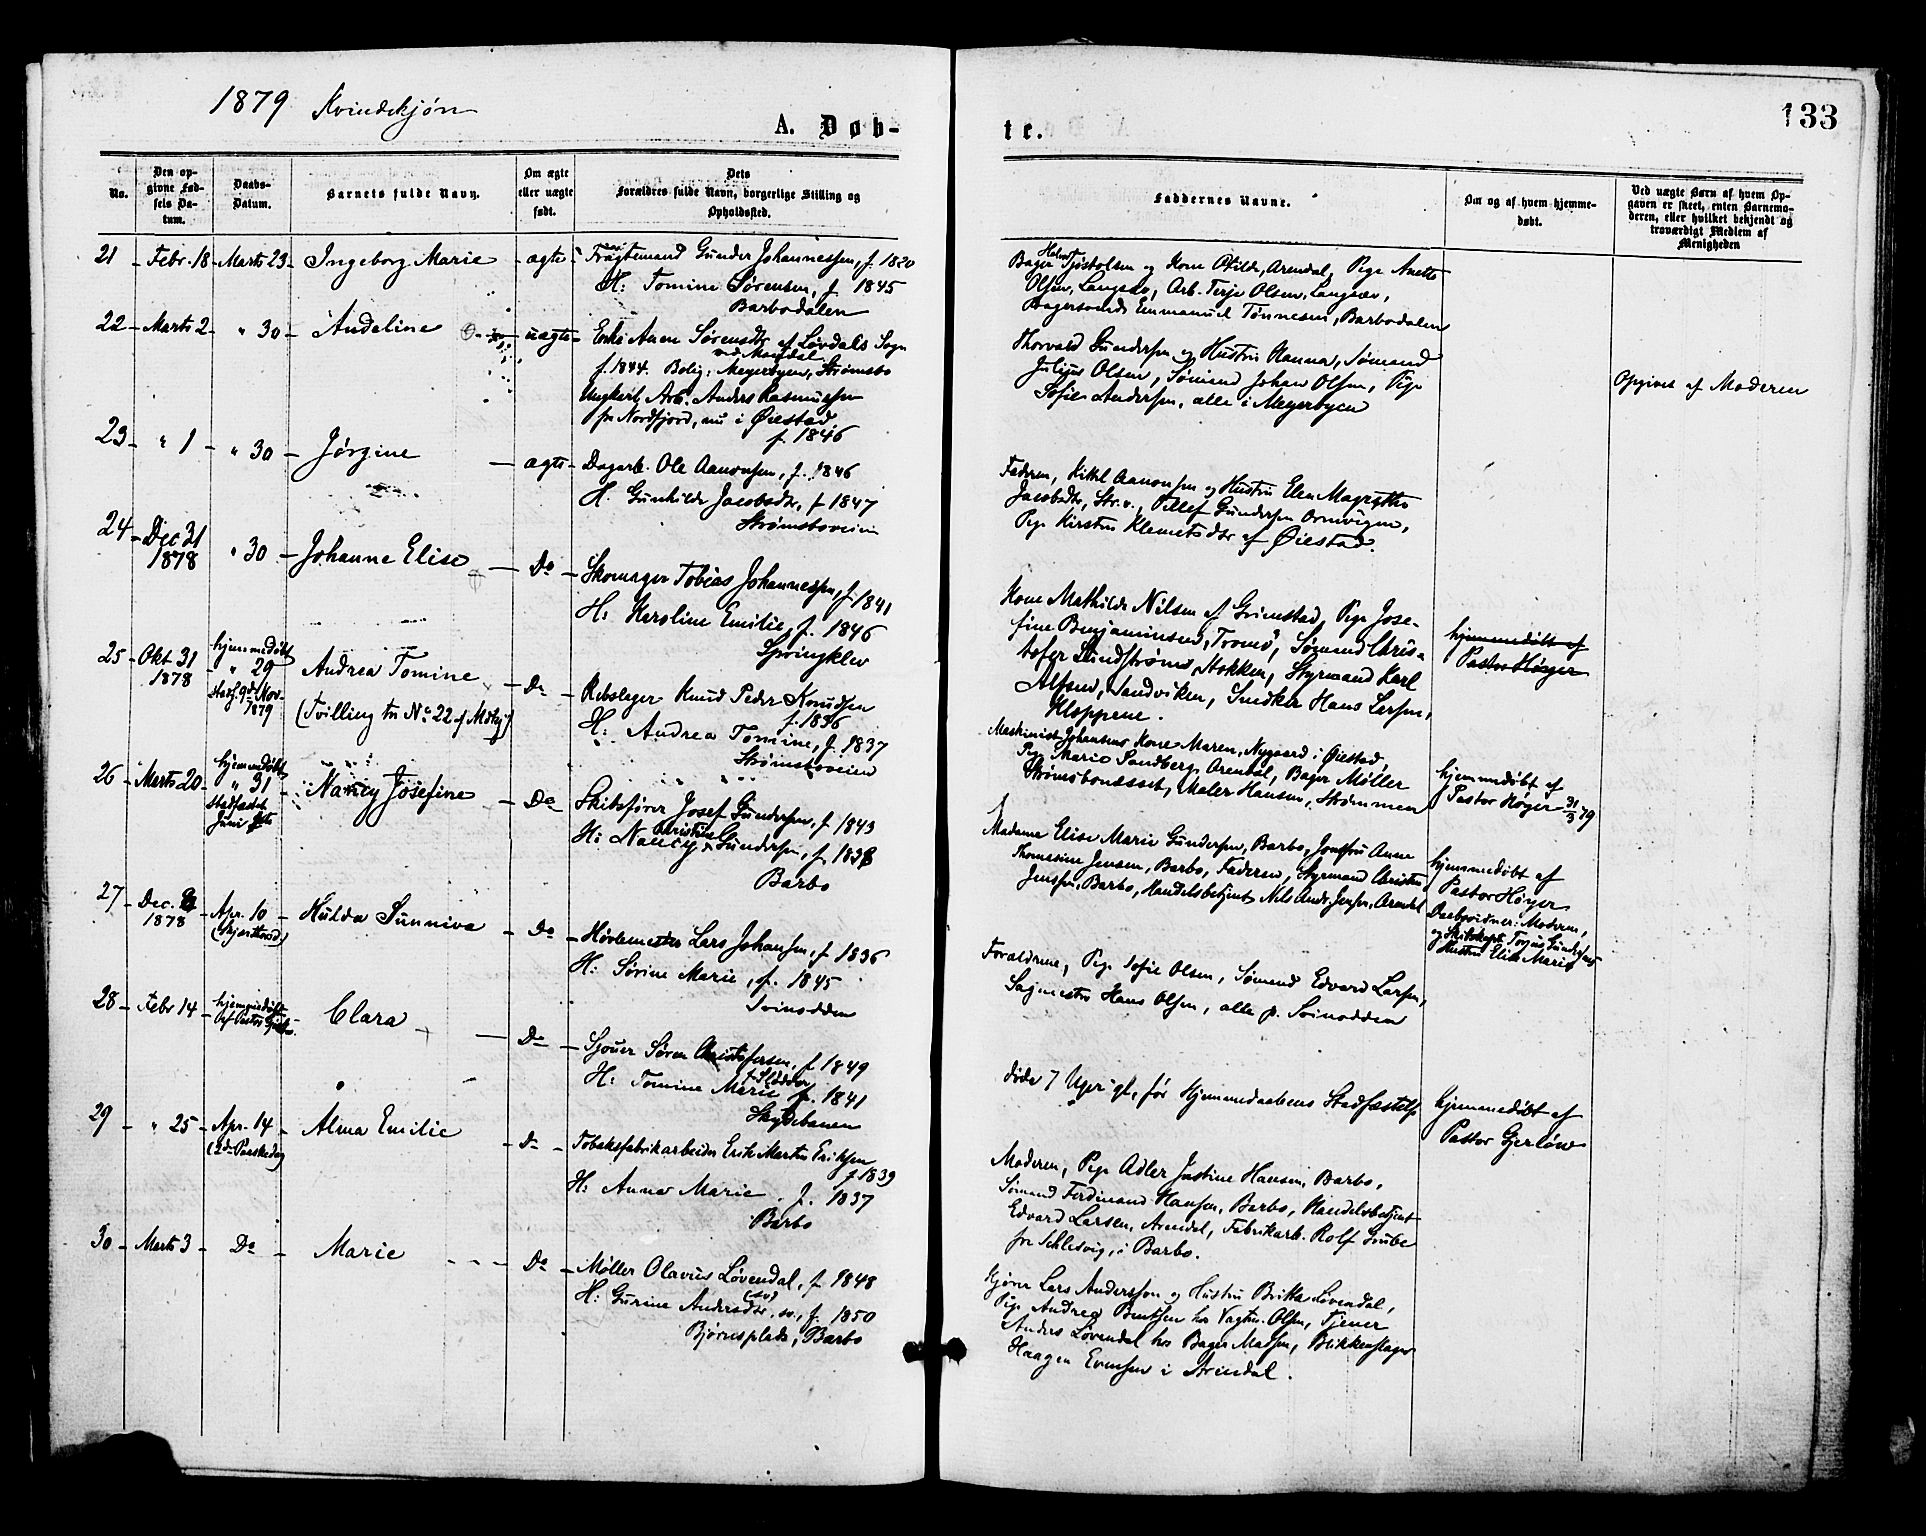 1879 Kvindekjøn
A. Døb-
te.
133
No.
Den op-
givne Fød-
sels Da-
tum.
Daabs-
Datum.
Barnets fulde Navn.
Om ægte
eller uægte
født.
Dets
Forældres fulde Navn, borgerlige Stilling og
Opholdssted.
Faddernes Navne.
Om og af hvem hjemme-
døbt.
Ved uægte Børn af hvem Op-
gaven er skeet, enten Barnemo-
deren, eller hvilket bekjendt og
troværdigt Medlem af
Menigheden
21 Febr. 18 Marts 23 Ingeborg Marie ægte
Gunder Johannessen, f. 1820
H: Tomine Sørensen, f 1845
Barbodalen
Tjøstolsen og Kone Otilde, Arendal, Pige Anette
Olsen, Langsæv, Arb. Terje Olsen, Langsæv,
Emmanuel Tønnesen, Barbodalen
22 Marts 2 " 30 Andeline uægte
Enke Anen Sørensdtr af Løvdals Sogn
ved Mandal
f. 1844. Bolig: Meyerbyen, Strømsbo
Ungkarl, Arb. Anders Rasmussen
fra Nordfjord, nu i Øiestad
f. 1846
Thorvald Gundersen og Hustru Hanna, Sømand
Julius Olsen, Sømand Johan Olsen, Pige
Sofie Andersen, alle i Meyerbyen
Opgivet af Moderen
23 " 1 " 30 Jørgine ægte
Dagarb. Ole Aanonsen, f. 1846
H. Gunhilde Jacobsdtr, f 1847
Strømsboveien
Faderen, Kittel Aanonsen og Hustru Elen Magrethe
Jacobsdtr, Str.v., Tellef Gundersen
Pige Kirstin Klemetsdtr af Øiestad.
24 Dec 31
1878 " 30 Johanne Elise Do
Skomager Tobias Johannessen, f. 1841
H: Karoline Emilie, f. 1846
Springklev
Kone Mathilde Nilsen af Grimstad, Pige Jose-
fine Benjaminsen, Tromø, Sømand Chris-
tofer Stokken, Styrmand Karl
Alfsen, Sandviken, Snedker Hans Larsen,
Kloppene.
hjemmedøbt af
Pastor Høyer
25 Okt 31
1878
hjemmedøbt
" 29
stadf. 9de Nov.
1879
Andrea Tomine
(Tvilling til No 22 af Mdkj.)
Do
Rebslager Knud Peder Knudsen
f. 1836
H: Andrea Tomine, f. 1837
Strømsboveien
Maskinist Johansens Kone Maren, Nygaard i Øiestad,
Pige Marie Sandberg, Arendal, Bager Møller
Strømsbonæsset, Maler Hansen, Strømmen
hjemmedøbt af
Pastor Høyer 31/3 79
26 Marts 20
hjemmedøbt
" 31
stadfæstet
Juni
Nancy Josefine Do
Skibsfører Josef Gundersen, f 1843
Christine
H: Nancy Gundersen, f. 1838
Barbo
Madame Elise Marie Gundersen, Barbo, Jomfru Anne
Thomasine Jensen, Barbo, Faderen, Styrmand Christen
Jensen, Barbo, Handelsbetjent Nils Andr. Jensen, Arendal
hjemmedøbt af
Pastor Høyer
Daabsvidner: Moderen,
og Skibskapt. Terjus Gundersens
Hustru Elise Marie
27 Dec.
1878
Apr. 10
(Skjærthorsd)
Hulda Sunniva Do
Høvlemester Lars Johansen, f 1836
H: Sørine Marie, f. 1845
Svinodden
Forældrene, Pige Sofie Olsen, Sømand Edvard Larsen,
Sagmester Hans Olsen, alle p. Svinodden
28 Febr 14
hjemmedøbt
af Pastor
Clara Do
Sjouer Søren Christofersen, f 1849
H: Tomine Marie f. 1841
Skydebanen
døde 7 før Hjemmedaabens Stadfæstelse
hjemmedøbt af
Pastor Gjerløw
29 " 25 Apr. 14
(2den Paaskedag)
Alma Emilie Do
Tobaksfabrikarbeider Erik Martin Eriksen
f 1839
H: Anna Marie, f. 1837
Barbo
Moderen, Pige Adler Justine Hansen, Barbo,
Sømand Ferdinand Hansen, Barbo, Handelsbetjent
Edvard Larsen, Arendal, Fabrikarb. Rolf Grube
fra Schlesvig, i Barbo.
30 Marts 3 Do Marie Do
Møller Olavus Løvendal, f. 1848
H: Gurine Andersdtr, f. 1850
Bjørnsplads, Barbo
Kjører Lars Andersen og Hustru Britta Løvendal,
Pige Andrea Berntsen hos Vagtm. Olsen, Tjener
Anders Løvendal hos Bager Madsen, Blikkenslager
Haagen Evensen i Arendal.